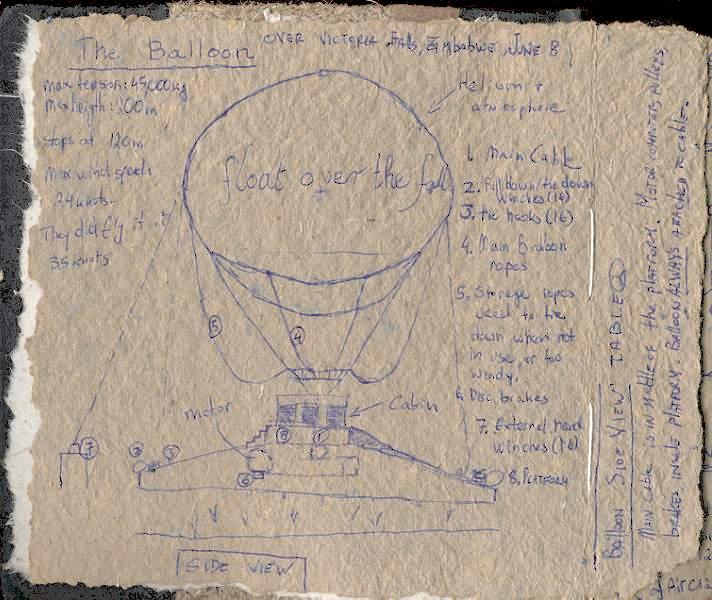 The Balloon
OVER VICTORIA FALLS, ZIMBABWE, JUNE 8
max tension: 45000kg
max heigth: 200m
stops at 120m
Max wind speeds
24 knots.
They did fly it at
35 knots
Helium +
atmosphere
float over the falls
1. Main Cable
2. Pull down/tie down
winches (16)
3. tie hooks (16)
4. Main Balloon
ropes
5. Storage ropes
used to tie
down when not
in use, or too
windy.
6. Disc brakes
7. External hand
winches (16)
8. PLATFORM
5
4
motor
Cabin
7
3
5
8
1
6
SIDE VIEW
BALLOON SIDE VIEW TABLE
MAIN CABLE IS IN MIDDLE OF THE PLATFORM. MOTOR, COMPUTERS, PULLEYS,
BRAKES INSIDE PLATFORM. BALLOON ALWAYS ATTACHED TO CABLE.